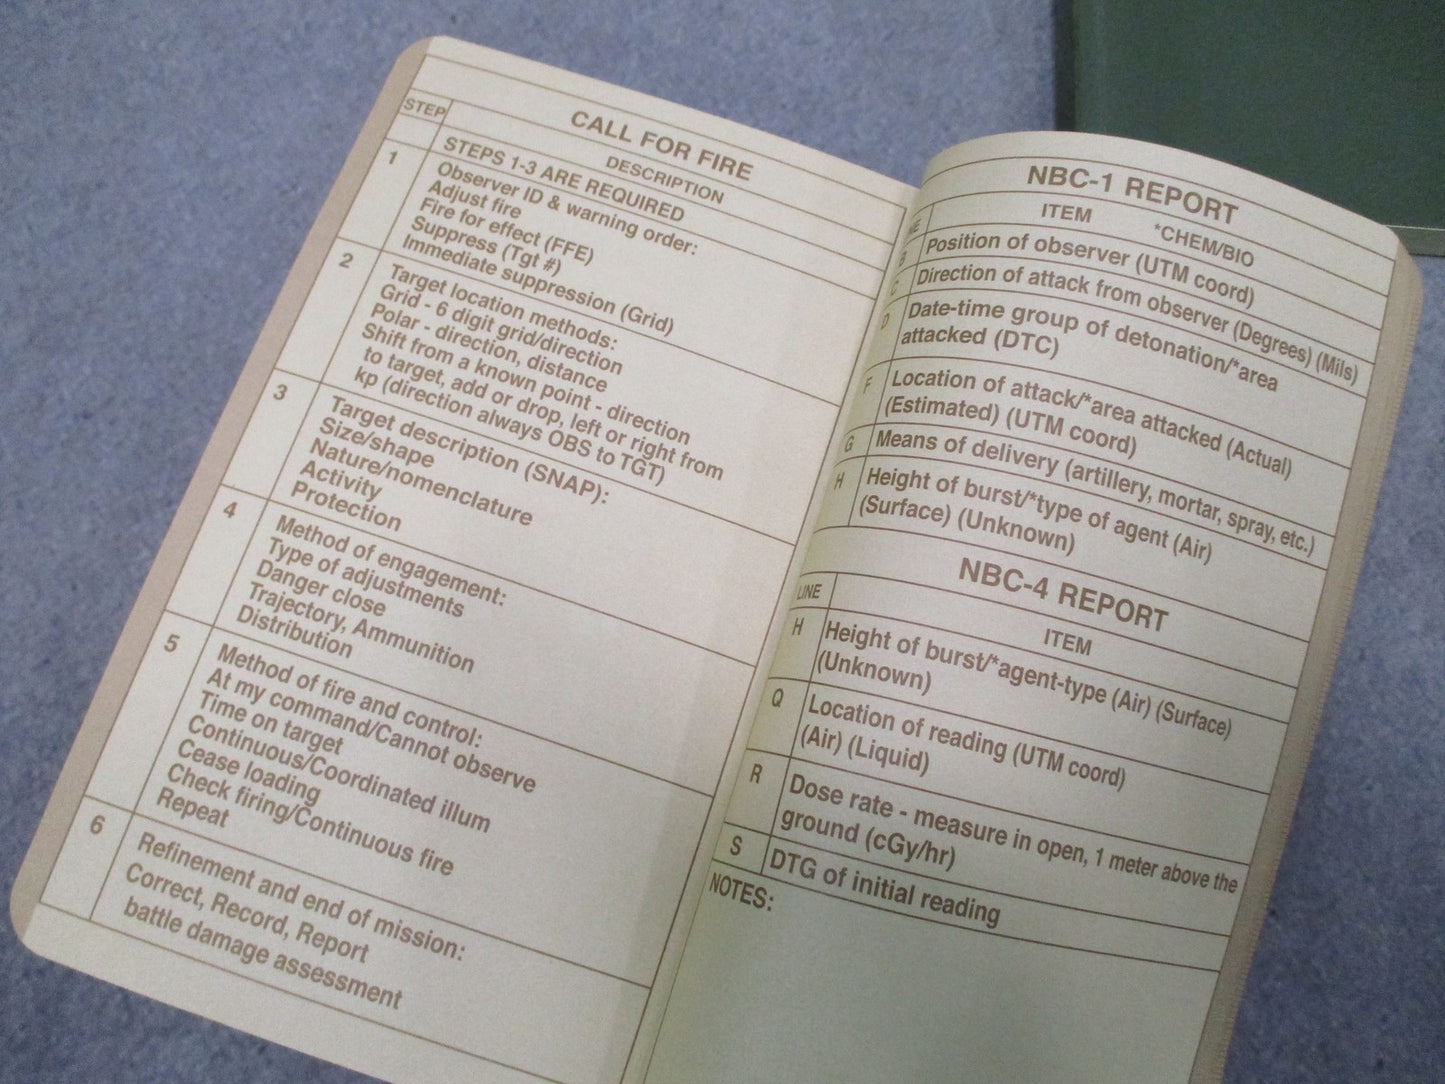 CALL FOR FIRE
STEP
DESCRIPTION
STEPS 1-3 ARE REQUIRED
1
Observer ID & warning order:
Adjust fire
Fire for effect (FFE)
Suppress (Tgt #)
Immediate suppression (Grid)
2
Target location methods:
Grid - 6 digit grid/direction
Polar - direction, distance
Shift from a known point - direction
to target, add or drop, left or right from
kp (direction always OBS to TGT)
3
Target description (SNAP):
Size/shape
Nature/nomenclature
Activity
Protection
4
Method of engagement:
Type of adjustments
Danger close
Trajectory, Ammunition
Distribution
5
Method of fire and control:
At my command/Cannot observe
Time on target
Continuous/Coordinated illum
Cease loading
Check firing/Continuous fire
Repeat
6
Refinement and end of mission:
Correct, Record, Report
battle damage assessment
NBC-1 REPORT
ITEM *CHEM/BIO
B Position of observer (UTM coord)
C Direction of attack from observer (Degrees) (Mils)
D Date-time group of detonation/*area
attacked (DTC)
F Location of attack/*area attacked (Actual)
(Estimated) (UTM coord)
G Means of delivery (artillery, mortar, spray, etc.)
H Height of burst/*type of agent (Air)
(Surface) (Unknown)
NBC-4 REPORT
LINE ITEM
H Height of burst/*agent-type (Air) (Surface)
(Unknown)
Q Location of reading (UTM coord)
(Air) (Liquid)
R Dose rate - measure in open, 1 meter above the
ground (cGy/hr)
S DTG of initial reading
NOTES: